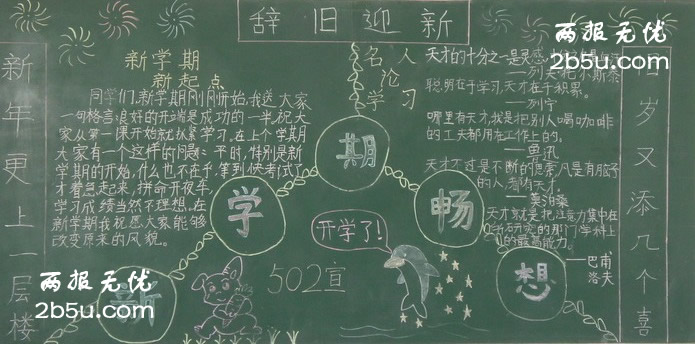 辞旧迎新
两报无优
2b5u.com
新年更上一层楼
旧岁又添几个喜
新学期
新起点
同学们,新学期刚刚开始,我送大家
一句格言:良好的开端是成功的一半,祝大
家从第一课开始就抓紧学习。在上个学期
大家有一个这样的问题:平时,特别是新
学期的开始,什么也不在乎,等到快考试了
才着急起来,拼命开夜车,
学习成绩当然不理想。在
新学期我祝愿大家能够
改变原来的风貌。
名人
论
学习
天才的十分之一是灵感
——列夫·托尔斯泰
聪明在于学习,天才在于积累。
——列宁
哪里有天才,我是把别人喝咖啡
的工夫都用在工作上的。
——鲁迅
天才不过是不断的思索,凡是有脑子
的人,都有天才。
——莫泊桑
天才就是把注意力集中在
所研究的那门学科上
的最高能力。
——巴甫
洛夫
新学期畅想
开学了!
502宣
两报无优
2b5u.com
两报无优
2b5u.com